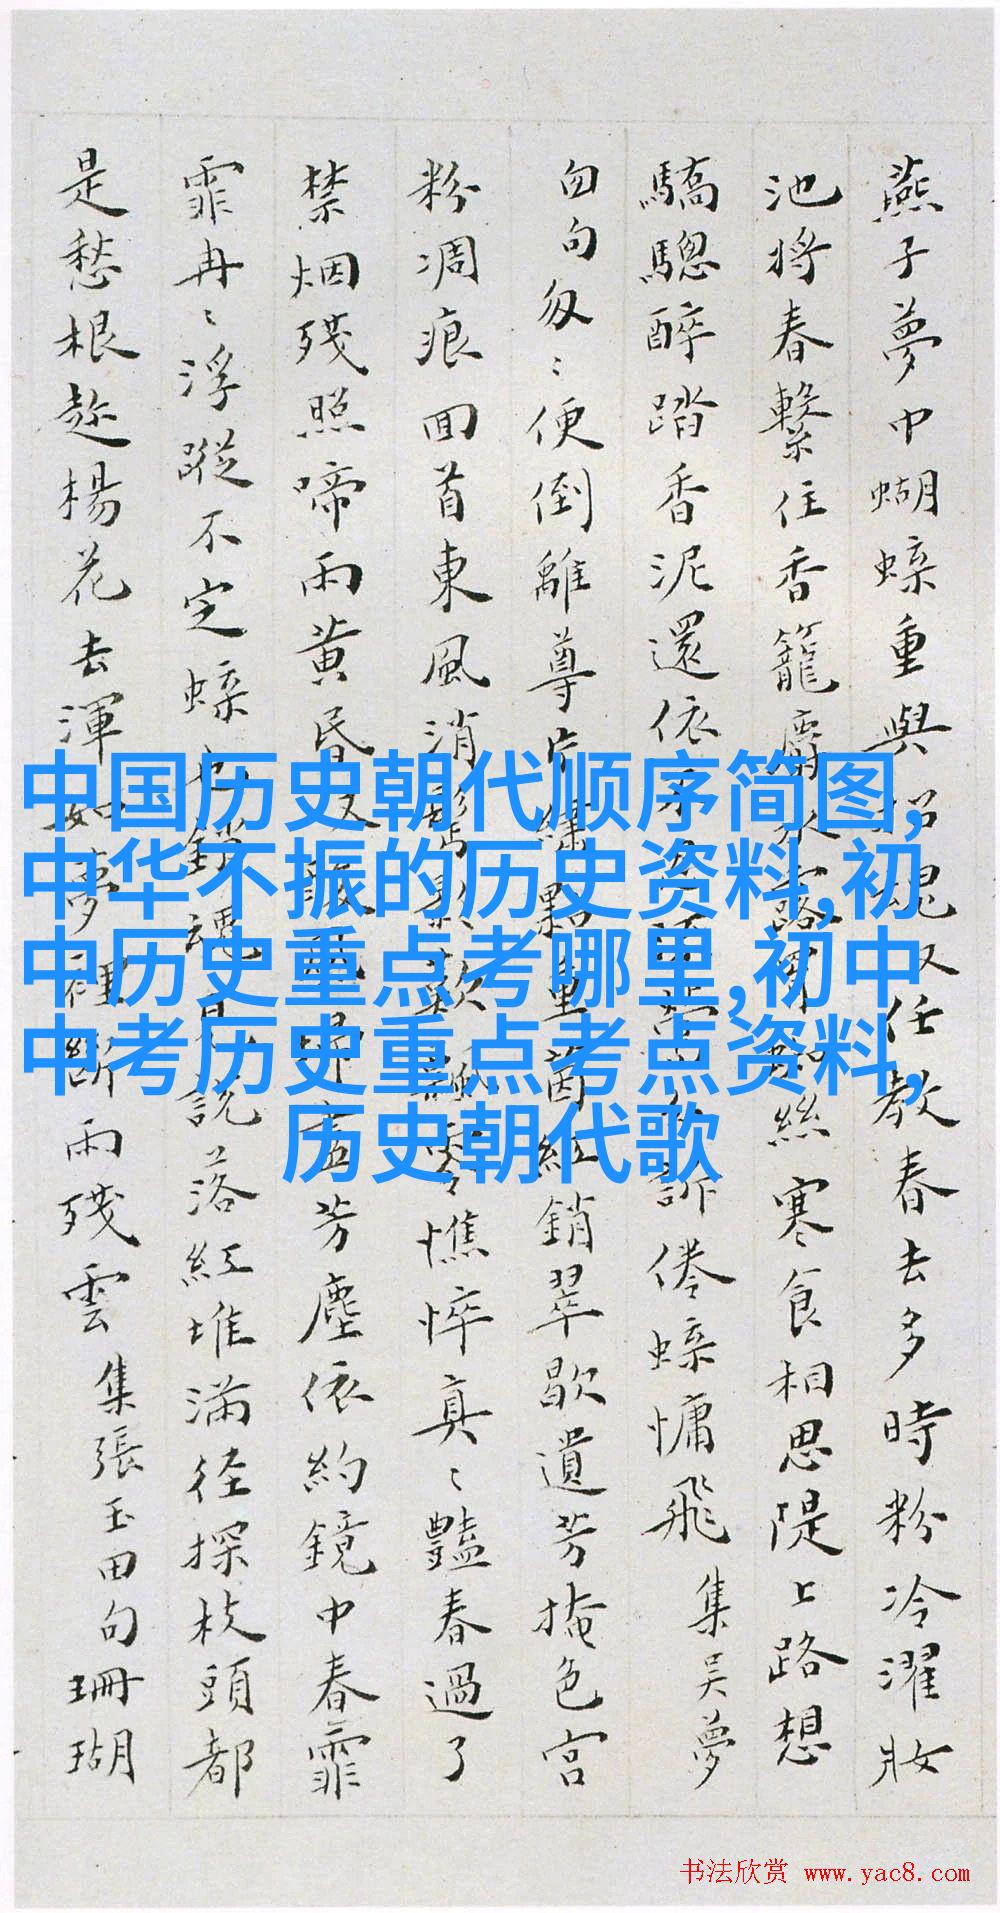 燕子夢中蝴蜨重與招魂又任教春去多時粉冷濯妝
池將春繫住香籠麝水
絲寒食相思隄上路想
驕驄醉踏香泥還依
訴倦蜨慵飛 集吴夢
勿句匆〻便倒離尊片繡點重茵紅銷翠歇遺芳掩色宮
粉凋痕回首東風消鬢影
憔悴真〻豔春過了
禁烟殘照啼雨黄昏
芳塵依約鏡中春霏
霏冉〻浮蹤不定蜨也銷魂
說落紅堆滿徑探枝頭都
是愁根趁楊花去渾如夢裡斷雨殘雲 集張玉田句 珊瑚
中国历史朝代顺序简图,
中华不振的历史资料,初
中历史重点考哪里,初中
中考历史重点考点资料,
历史朝代歌
书法欣赏 www.yac8.com